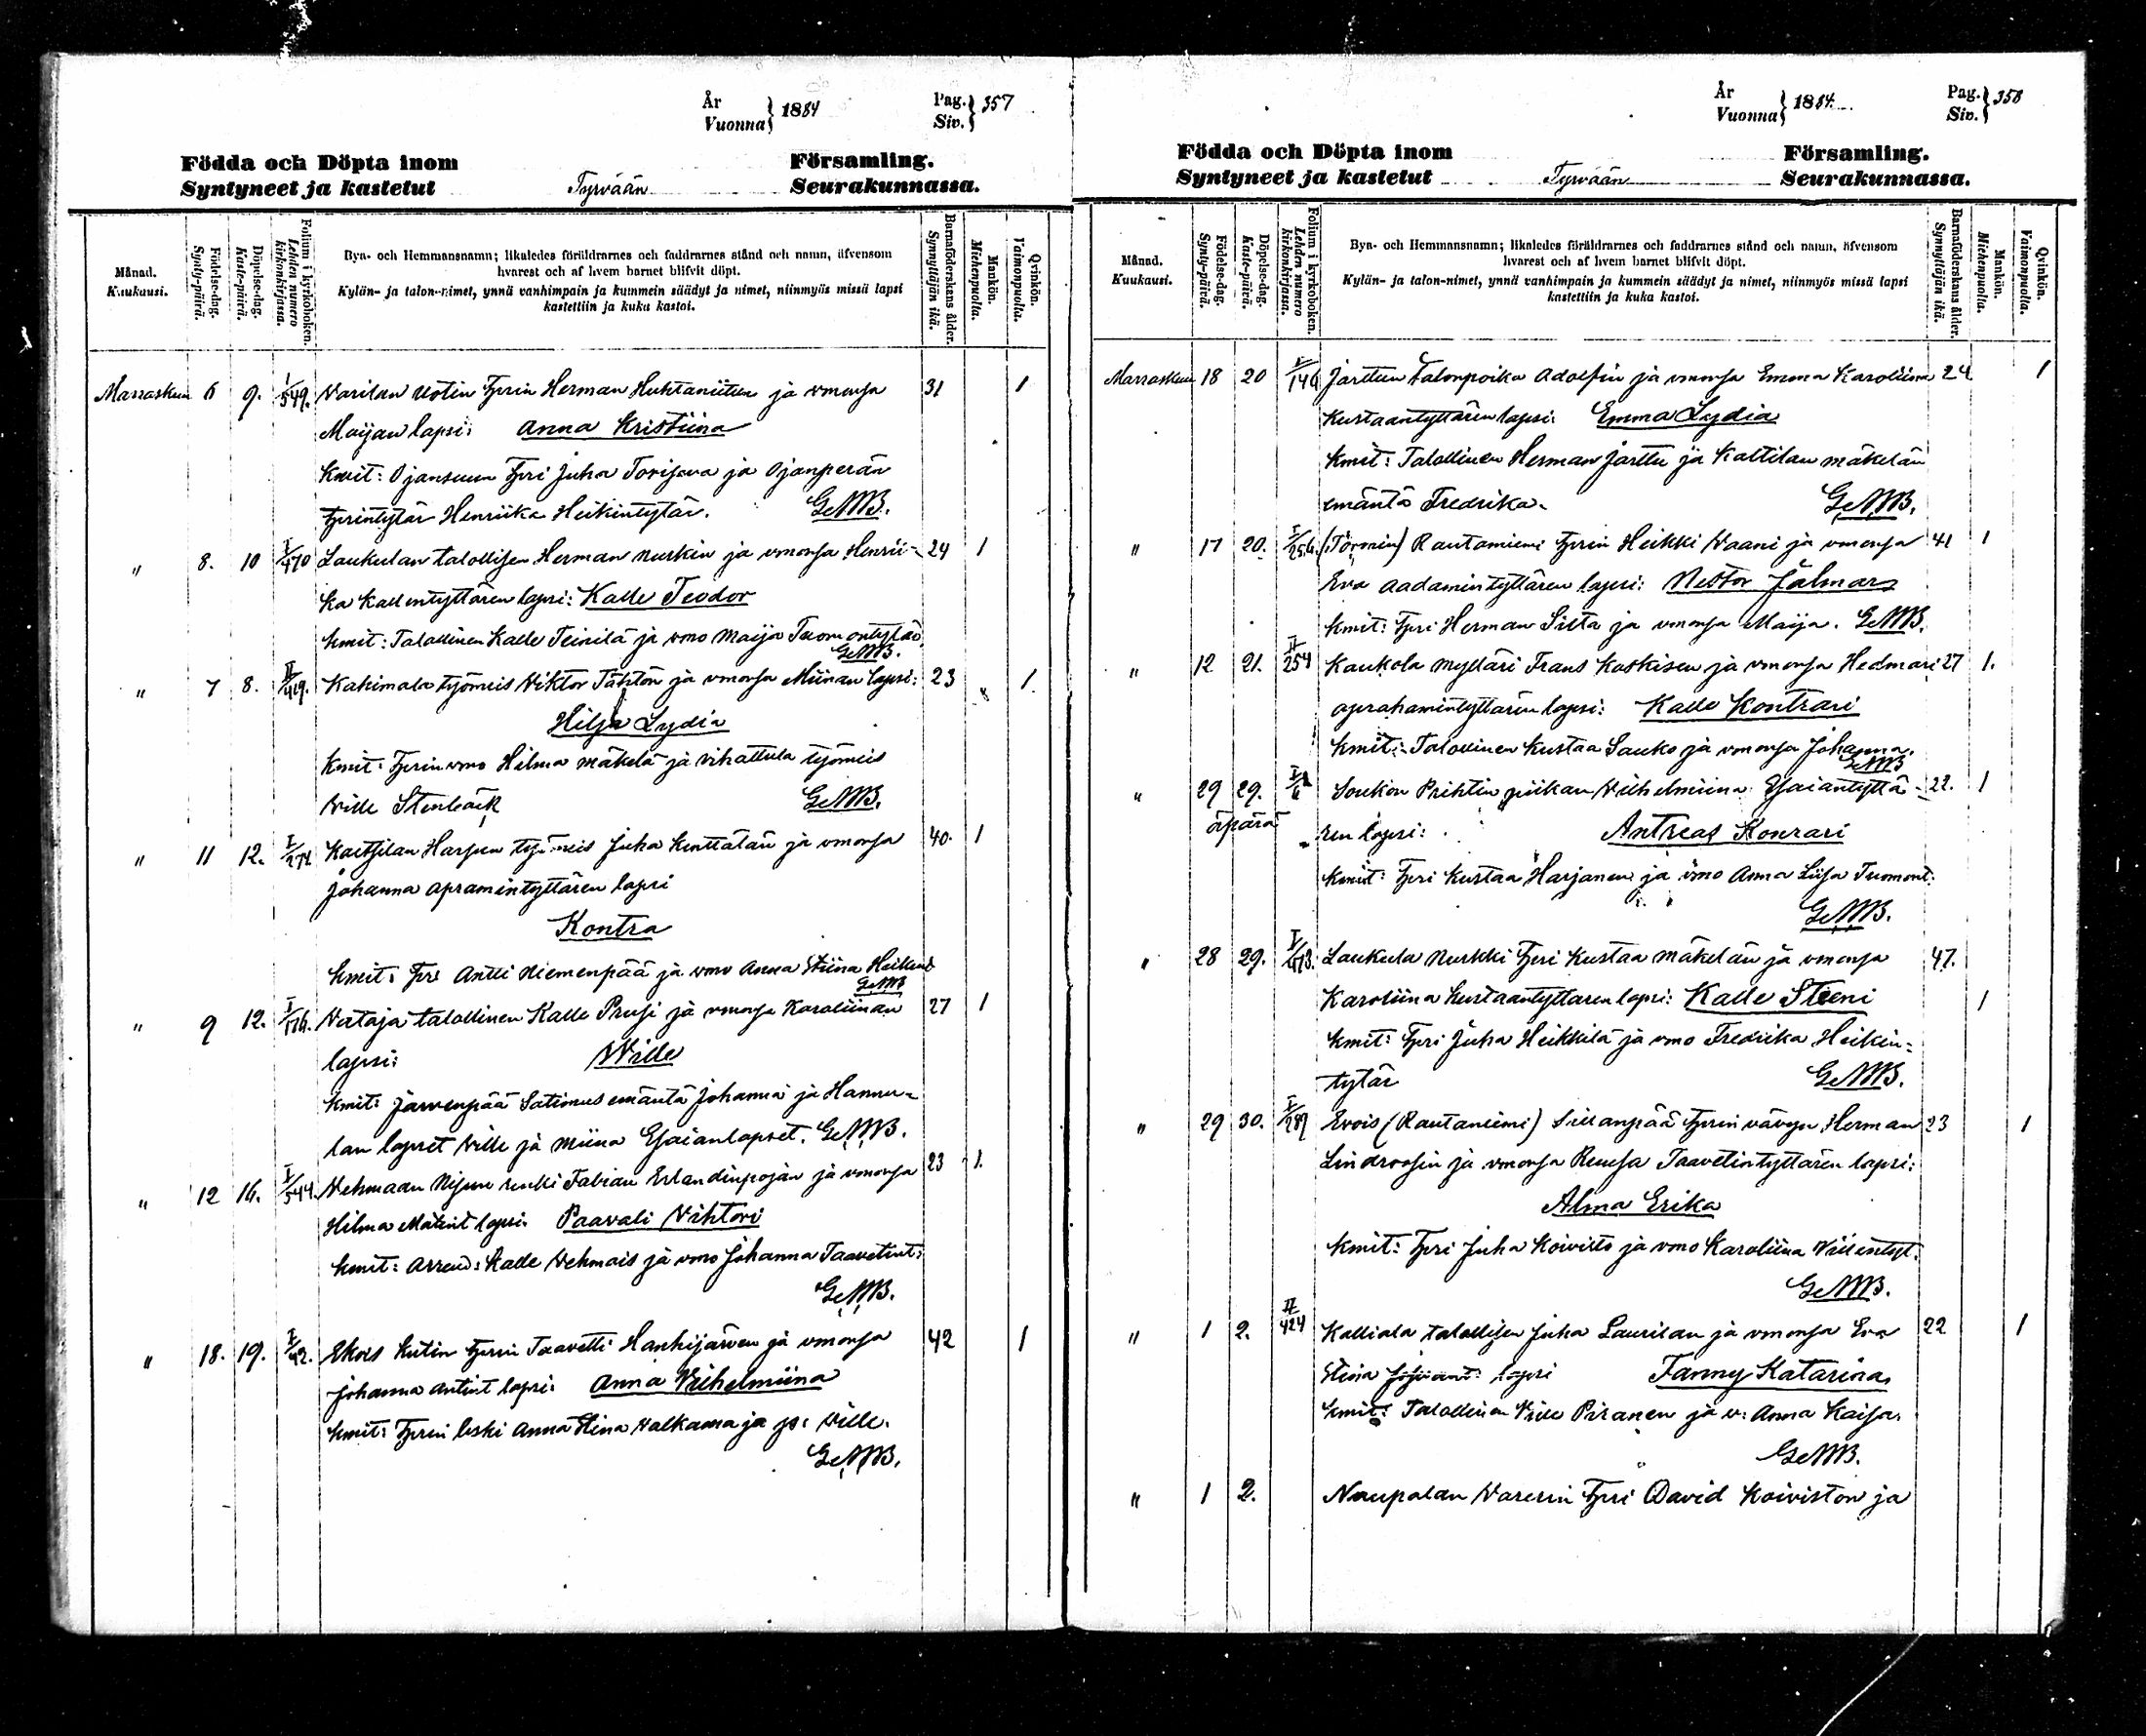 År
Vuonna } 1884
Pag.
Siv. } 357
Födda och Döpta inom Församling.
Syntyneet ja kastetut Tyrvään Seurakunnassa.
Månad.
Kuukausi.
Födelse-dag.
Synty-päivä.
Döpelse-dag.
Kaste-päivä.
Folium i kyrkoboken.
Lehden numero
kirkonkirjassa.
Byn- och Hemmansnamn; likaledes föräldrarnes och faddrarnes stånd och namn, äfvensom
hvarest och af hvem barnet blifvit döpt.
Kylän- ja talon-nimet, ynnä vanhimpain ja kummein säädyt ja nimet, niinmyös missä lapsi
kastettiin ja kuka kastoi.
Barnaföderskans ålder.
Synnyttäjän ikä.
Mankön.
Miehenpuolta.
Qvinkön.
Vaimonpuolta.
Marraskuu 6 9. I/549. Varilan Uotin Tprin Herman Huhtaniitun ja vmonsa 31 1
Maijan lapsi: Anna Kristiina
Kmit: Ojansuun Tpri Juha Toriseva ja Ojanperän
tprintytär Henriika Heikintytär. GeMB.
" 8. 10 I/470 Laukulan talollisen Herman Nurkin ja vmonsa Henrii- 24 1
ka Kallentyttären lapsi: Kalle Teodor
Kmit: Talollinen Kalle Teinilä ja vmo Maija Tuomontytär
GeMB.
" 7 8. II/419. Kahimala työmies Viktor Tähtön ja vmonsa Miinan lapsi: 23 1.
Hilja Lydia
Kmit: Tprin vmo Hilma Mäkelä ja Vihattula työmies
Wille Stenbäck GeMB.
" 11 12. I/274 Kaitsilan Harjun työmies Juha Kenttälän ja vmonsa 40. 1
Johanna Apramintyttären lapsi
Kontra
Kmit: Tpri Antti Niemenpää ja vmo Anna Stiina Heikint
GeMB
" 9 12. I/176. Vataja talollinen Kalle Prusi ja vmonsa Karoliinan 27 1
lapsi: Wille
Kmit: Järvenpää Satimus emäntä Johanna ja Hannu-
lan lapset Wille ja Miina Esaianlapset. GeMB.
" 12 16. I/544. Vehmaan Nisun renki Fabian Erlandinpojan ja vmonsa 23 1.
Hilma Matint lapsi. Paavali Vihtori
Kmit: Arrend: Kalle Vehmais ja vmo Johanna Taavetint:
GeMB.
" 18. 19. I/42. Ekois Kutin tprin Taavetti Hanhijärven ja vmonsa 42 1
Johanna Antint lapsi: Anna Vilhelmiina
Kmit: Tprin leski Anna Stina Valkama ja ps: Wille.
GeMB.
År
Vuonna } 1884.
Pag.
Siv. } 358
Födda och Döpta inom Församling.
Syntyneet ja kastetut Tyrvään Seurakunnassa.
Månad.
Kuukausi.
Födelse-dag.
Synty-päivä.
Döpelse-dag.
Kaste-päivä.
Folium i kyrkoboken.
Lehden numero
kirkonkirjassa.
Byn- och Hemmansnamn; likaledes föräldrarnes och faddrarnes stånd och namn, äfvensom
hvarest och af hvem barnet blifvit döpt.
Kylän- ja talon-nimet, ynnä vanhimpain ja kummein säädyt ja nimet, niinmyös missä lapsi
kastettiin ja kuka kastoi.
Barnaföderskans ålder.
Synnyttäjän ikä.
Mankön.
Miehenpuolta.
Qvinkön.
Vaimonpuolta.
Marraskuu 18 20 I/146 Jarttun talonpoika Adolfin ja vmonsa Emma Karoliina 24 1
Kustaantyttären lapsi: Emma Lydia
Kmit: Talollinen Herman Jarttu ja Kattilan Mäkelän
emäntä Fredrika. GeMB.
" 17 20. I/256. (Törmin) Rautamiemi tprin Heikki Vaani ja vmonsa 41 1
Eva Aadamintyttären lapsi: Nestor Jalmar
Kmit: Tpri Herman Silta ja vmonsa Maija. GeMB.
" 12 21. II/254 Kaukola mylläri Frans Koskisen ja vmonsa Hedmari 27 1.
Aprahamintyttären lapsi: Kalle Kontrari
Kmit: Talollinen Kustaa Sauko ja vmonsa Johanna.
GeMB
" 29 29. Soukon Prihtin piikan Vilhelmiina Esaiantyttä- 22. 1
äpärä ren lapsi: Antreas Konrari
Kmit: Tpri Kustaa Harjanen ja vmo Anna Liisa Tuomont:
GeMB.
" 28 29. I/473. Laukula Nurkki Tpri Kustaa Mäkelän ja vmonsa 47.
Karoliina Kustaantyttären lapsi: Kalle Steeni 1
Kmit: Tpri Juha Heikkilä ja vmo Fredrika Heikin-
tytär GeMB.
" 29 30. I/289 Evois (Rautaniemi) Sillanpää tprin vävyn Herman 23 1
Lindroosin ja vmonsa Ruusa Taavetintyttären lapsi:
Alma Erika
Kmit: Tpri Juha Koivisto ja vmo Karoliina Villentyt.
GeMB.
" 1 2. II/424 Kalliala talollisen Juha Laurilan ja vmonsa Eva 22 1
Stina lapsi Fanny Katarina
Kmit: Talollinen Wille Piranen ja v: Anna Kaisa.
GeMB.
" 1 2. Naupalan Varerin Tpri David Koiviston ja